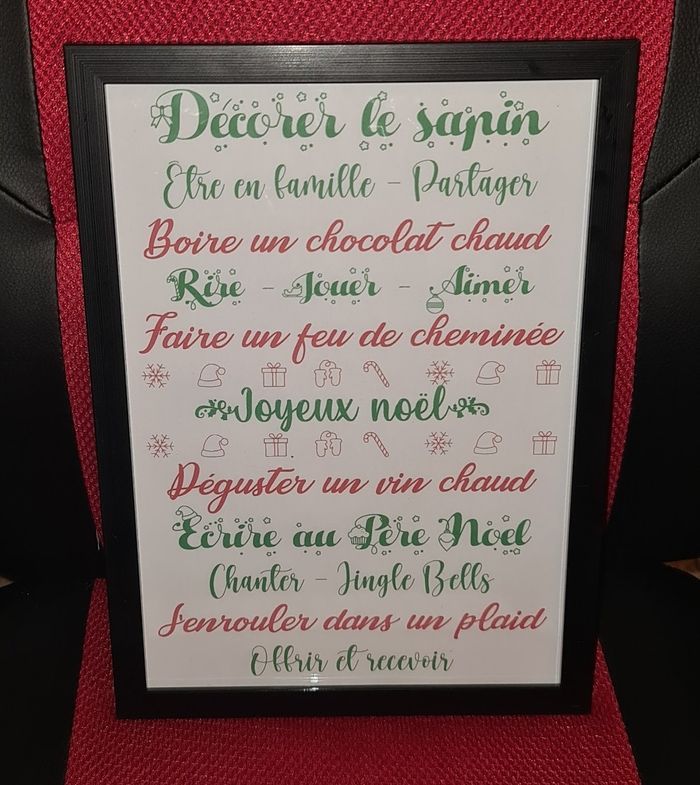 Décorer le sapin
Être en famille - Partager
Boire un chocolat chaud
Rire - Jouer - Aimer
Faire un feu de cheminée
Joyeux noël
Déguster un vin chaud
Ecrire au Père Noël
Chanter - Jingle Bells
S'enrouler dans un plaid
Offrir et recevoir